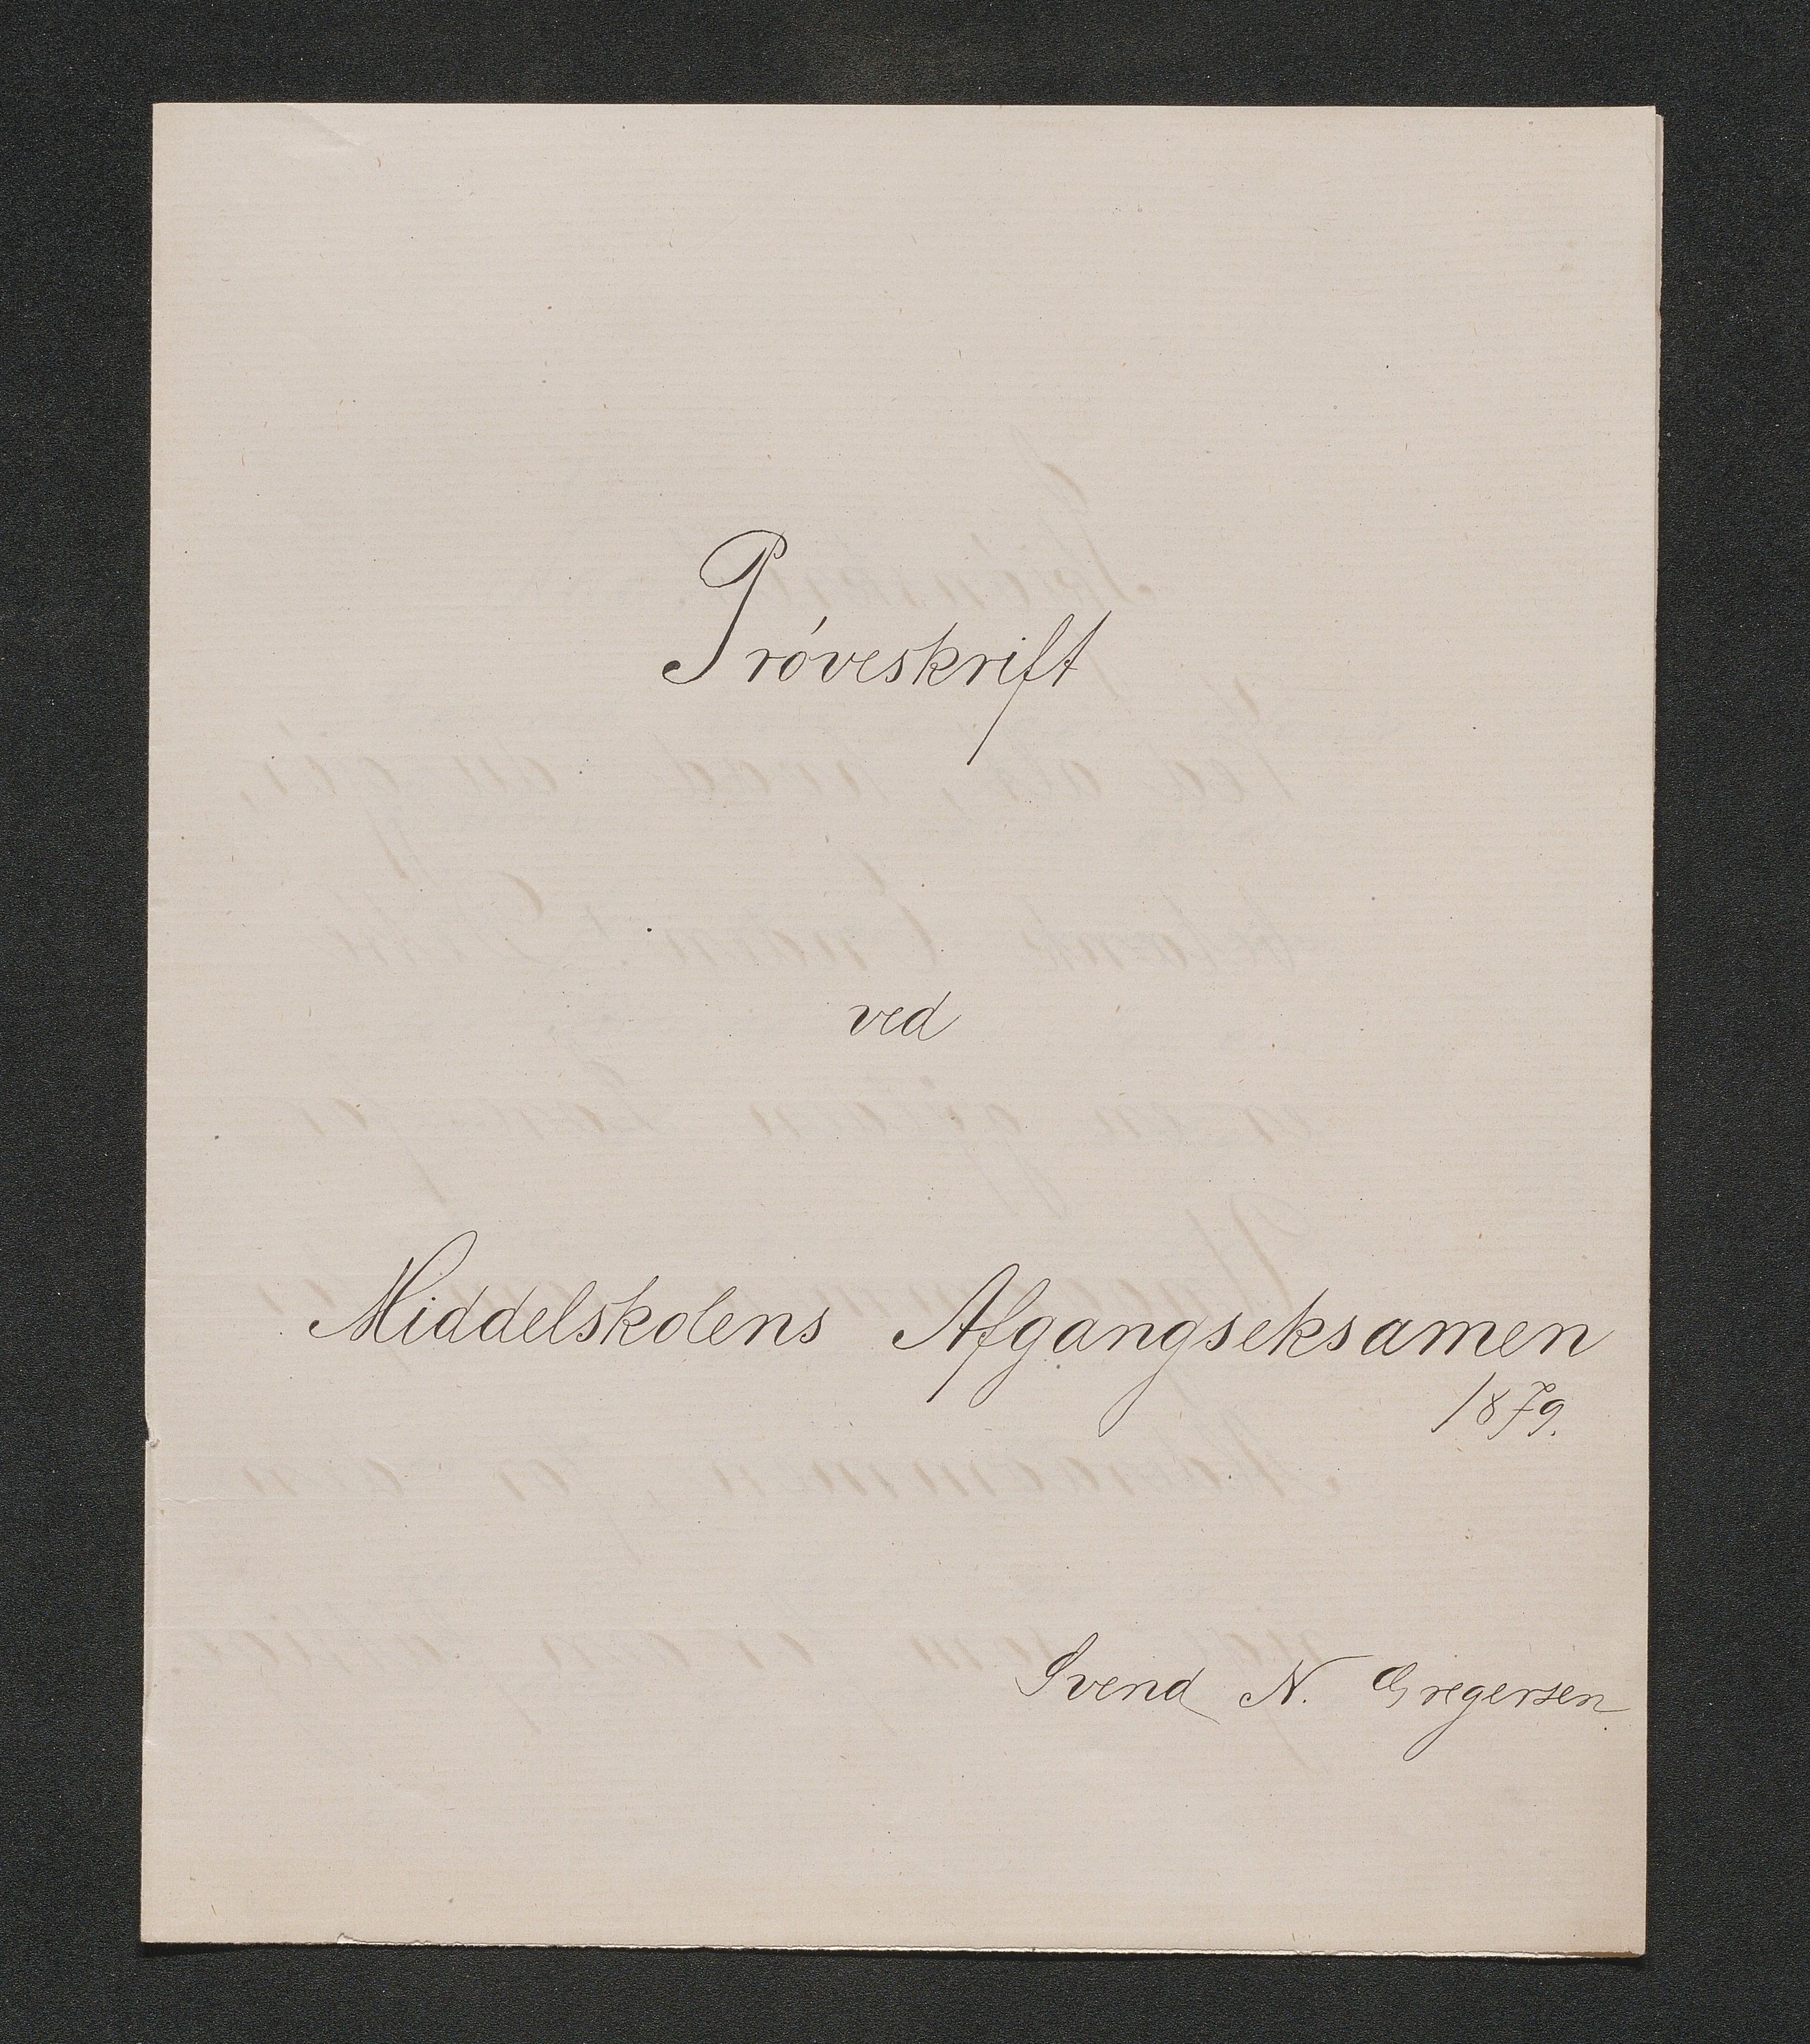 Próveskrift
ved
Middelskolens Afgangseksamen
1879.
Svend N. Gregersen